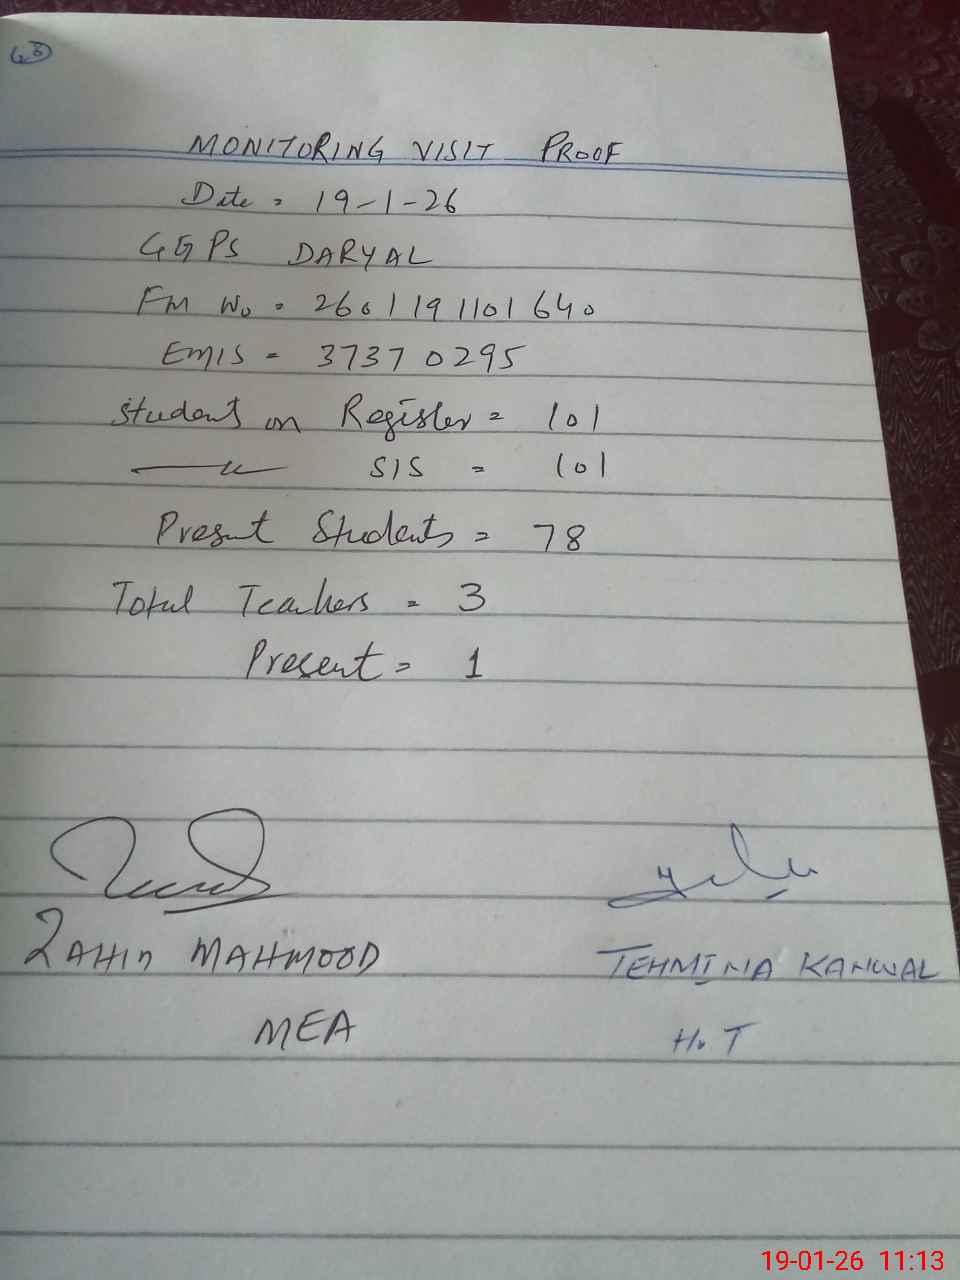 63
MONITORING VISIT PROOF
Date = 19-1-26
GGPS DARYAL
FM No = 2601191101640
EMIS = 37370295
Student on Register = 101
—〃— SIS = 101
Present Students = 78
Total Teachers = 3
Present = 1
ZAHID MAHMOOD
TEHMINA KANWAL
MEA
H.T
19-01-26 11:13